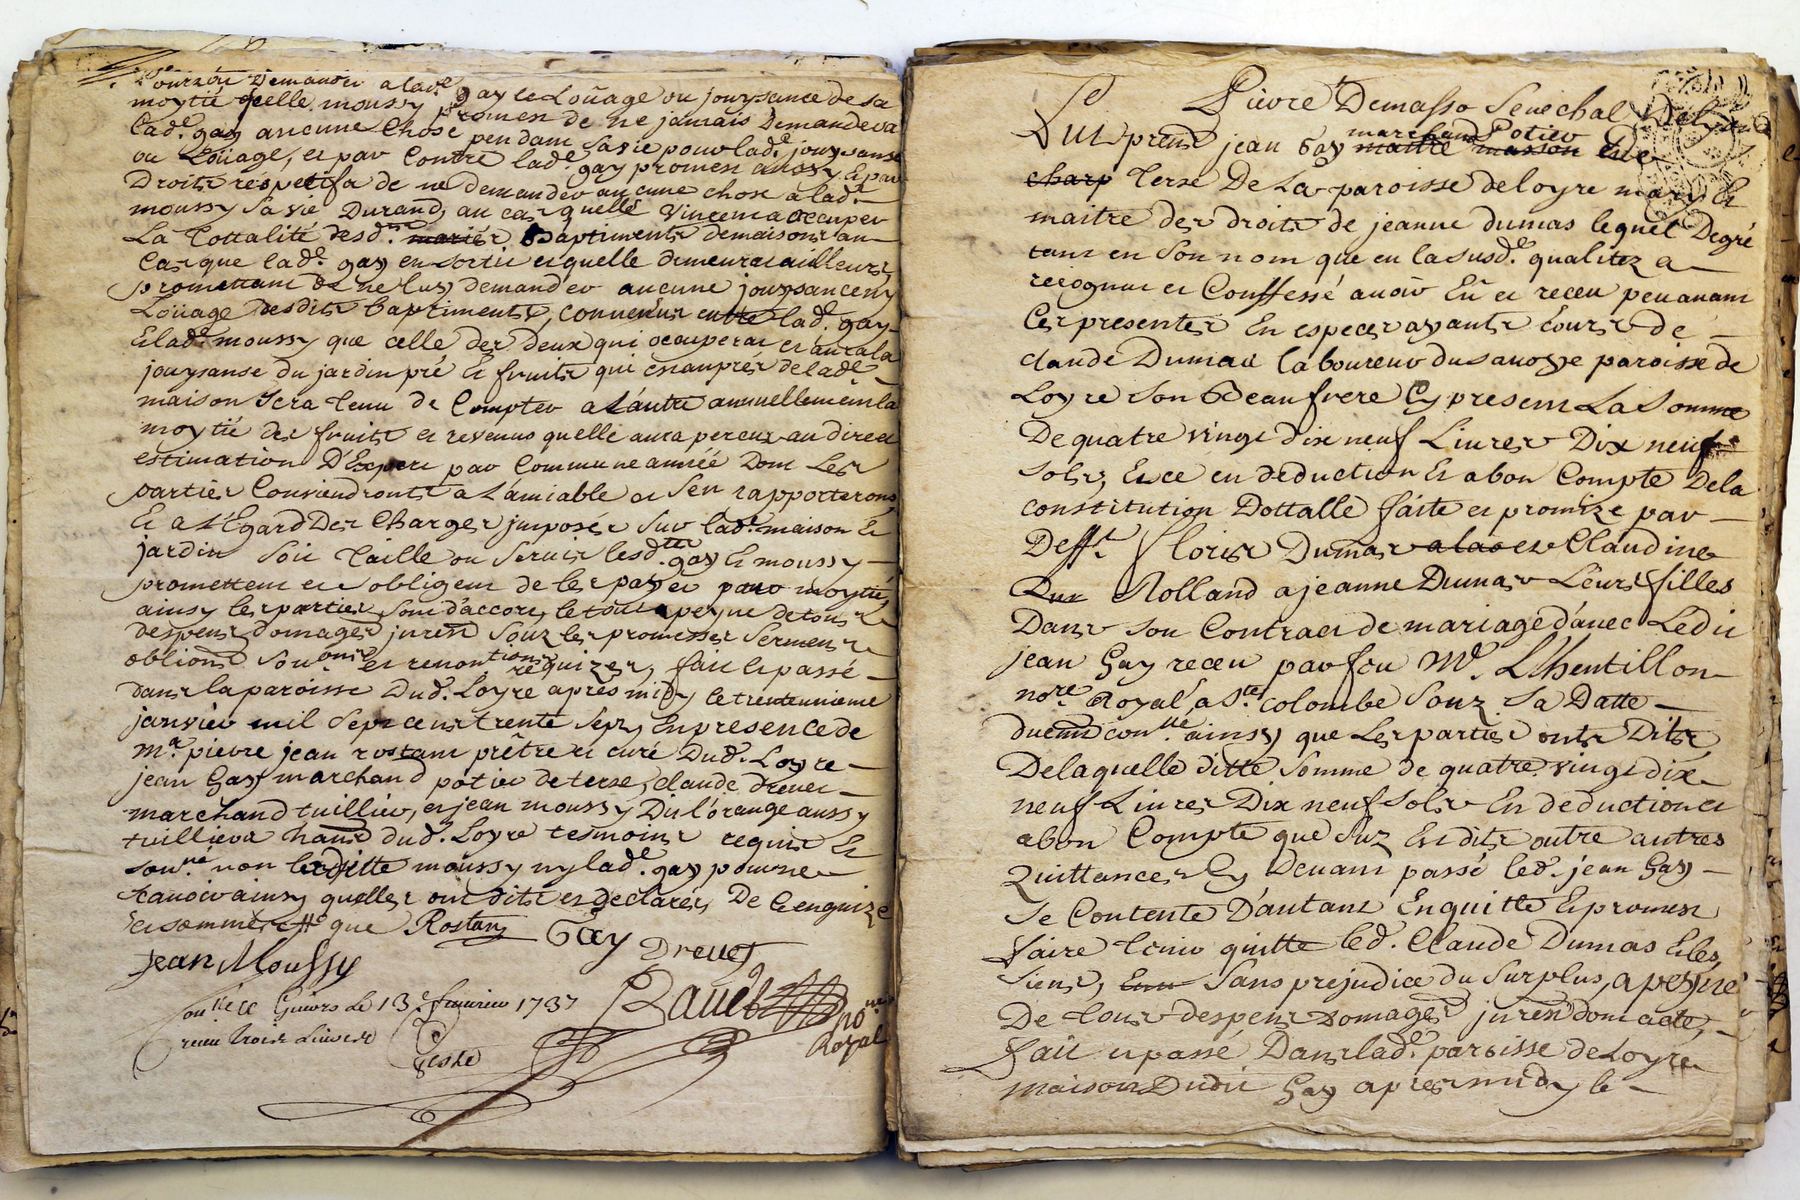 pourra demander a lade gay le Loüage ou jouysance de sa
moytié qu'elle moussy promen de ne jamais demander a
lade gay aucune chose pendant sa vie pour lade jouysanse
ou Loüage, et par contre lade gay promen aussy et par
Droits respetifs de ne demander aucune chose a lade
moussy sa vie Durand, au cas quelle vincent a occuper
La Tottalité desd. baptiments de maisons au
Cas que lade gay en sortit et quelle demeurat ailleurs
promettant de ne luy demander aucune jouysance ny
Loüage desdits baptiments, convenus entre lade gay
Et lade moussy que celle des deux qui ocuperat et aura la
jouysanse du jardin pré et fruits qui en auprés de lade
maison sera tenu de Compter a L'autre annuellement la
moytié des fruits et revenus quelle aura perceux au dire et
estimation D'Expert par Commune année Dont Les
parties Conviendronts a L'amiable ou s'en rapporterons
Et a L'Egard Des Charges imposés sur lade maison et
jardin soit taille ou servis lesd. gay et moussy
promettent et s'obligent de les payer par moytié
ainsy les parties sont d'accors, le tout a peyne de tous
despens domages juren souz les promesses sermens
obliond soubmis et renontions requizes, fait et passé
dans la paroisse Dud. Loyre aprés midy le trenteunieme
janvier mil Sept cens trente Sept, En presence de
mr. pierre jean rostant prêtre et curé Dud. Loyre
jean Gay marchand potier de terre, claude drevet
marchand tuillier, et jean moussy Dit l'orange aussy
tuillieur Dud. Loyre tesmoins requis et
sou.né non ladite moussy ny lade gay pour ne
sçavoir ainsy quelles ont dit et declarés De ce enquize
et sommé que Rostan Gay
Drevet
Jean Moussy
Con.llé a Givors le 13e fevrier 1737
reçu trois Livres
Teste
Bavet no.re
Royal
Pierre Demasso Senechal De Lyon
Fut present jean Gay marchand Potier de
terre De La paroisse de loyre mary et
maitre des droits de jeanne dumas lequel De gré
tant en son nom que en la susde. qualitez a
recognu et Conffessé avoir Eû et receu peu avant
Ces presentes En especes ayants cours de
claude Dumas laboureur du Savoye paroisse de
Loyre son Beaufrere Cy present La Somme
De quatre vingt dix neuf Livres Dix neuf
sols, Et ce en deduction Et a bon Compte De la
constitution Dottalle faite et promize par
Defft. floris Dumas et Claudine
Rolland a jeanne Dumas Leurs filles
Dans son Contract de mariage d'avec Ledit
jean Gay receu par feu Me. L'hentillon
nore. Royal a Ste. colombe souz sa Datte
duemt con.llé ainsy que Les parties onts Dits,
De laquelle ditte somme de quatre vingt dix
neuf Livres Dix neuf sols En deduction et
a bon Compte que suz Et dits outre autres
Quittances Cy Devant passé led. jean Gay
Se Contente D'autant En quitte Et promest
faire tenir quitte led. Claude Dumas Et les
siens, sans prejudice du surplus, a peyne
De tous despens domages juren dont acte,
fait et passé Dans lade. paroisse de Loyre
maison Dudit Gay apres midy le